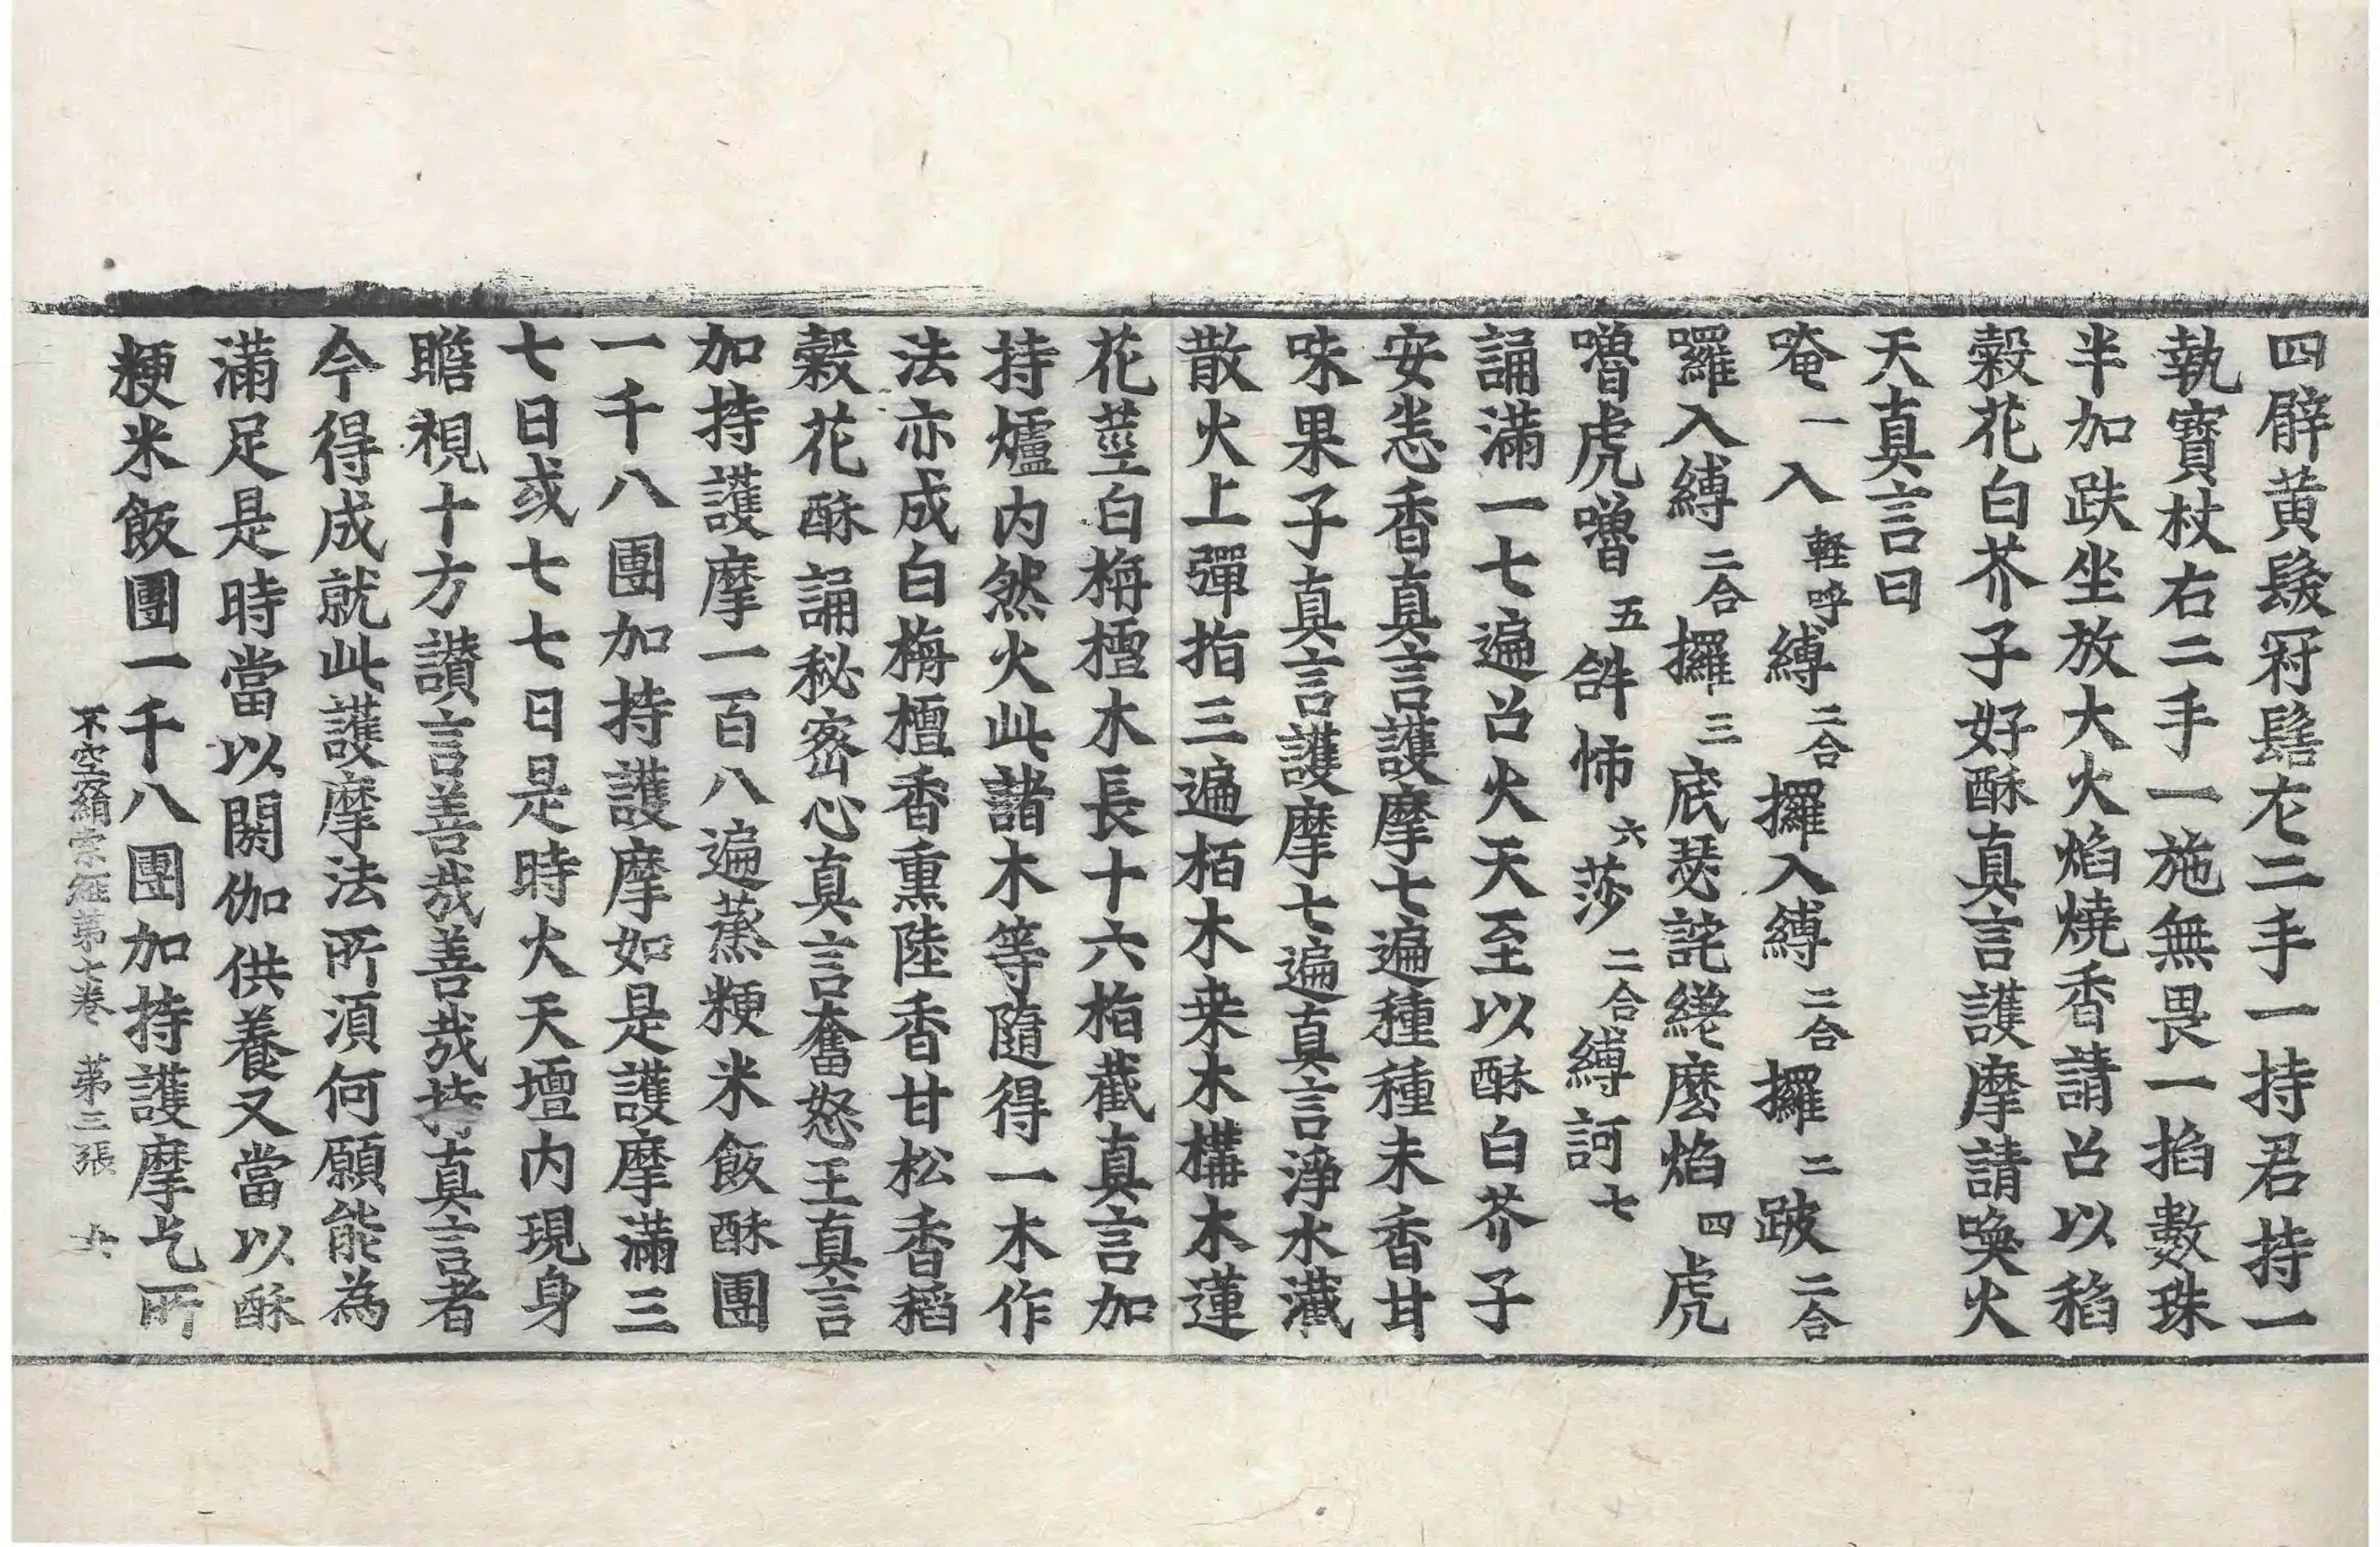 四臂黃髮冠髻左二手一持君持一
執寶杖右二手一施無畏一掐數珠
半加趺坐放大火焰燒香請召以稻
穀花白芥子好酥真言護摩請喚火
天真言曰
唵一入輕呼縛二合攞入縛二合攞二跛二合
囉入縛二合攞三底瑟詫繼麼焰四虎
嚕虎嚕五𤙖怖六莎二合縛訶七
誦滿一七遍召火天至以酥白芥子
安悉香真言護摩七遍種種末香甘
味果子真言護摩七遍真言淨水灑
散火上彈指三遍栢木桒木構木蓮
花莖白栴檀木長十六指截真言加
持爐內然火此諸木等隨得一木作
法亦成白栴檀香熏陸香甘松香稻
穀花酥誦秘密心真言奮怒王真言
加持護摩一百八遍蒸粳米飯酥團
一千八團加持護摩如是護摩滿三
七日或七七日是時火天壇內現身
瞻視十方讃言善哉善哉持真言者
今得成就此護摩法所須何願能為
滿足是時當以閼伽供養又當以酥
粳米飯團一千八團加持護摩乞所
不空羂索經第七卷 第三張